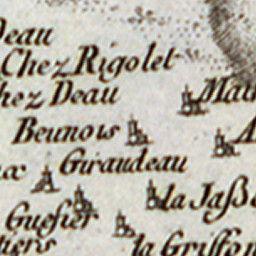 Deau
Chez Rigolet
hez Deau
Beunois
Giraudeau
la Jaße
Guesier
tiers
la Griffon